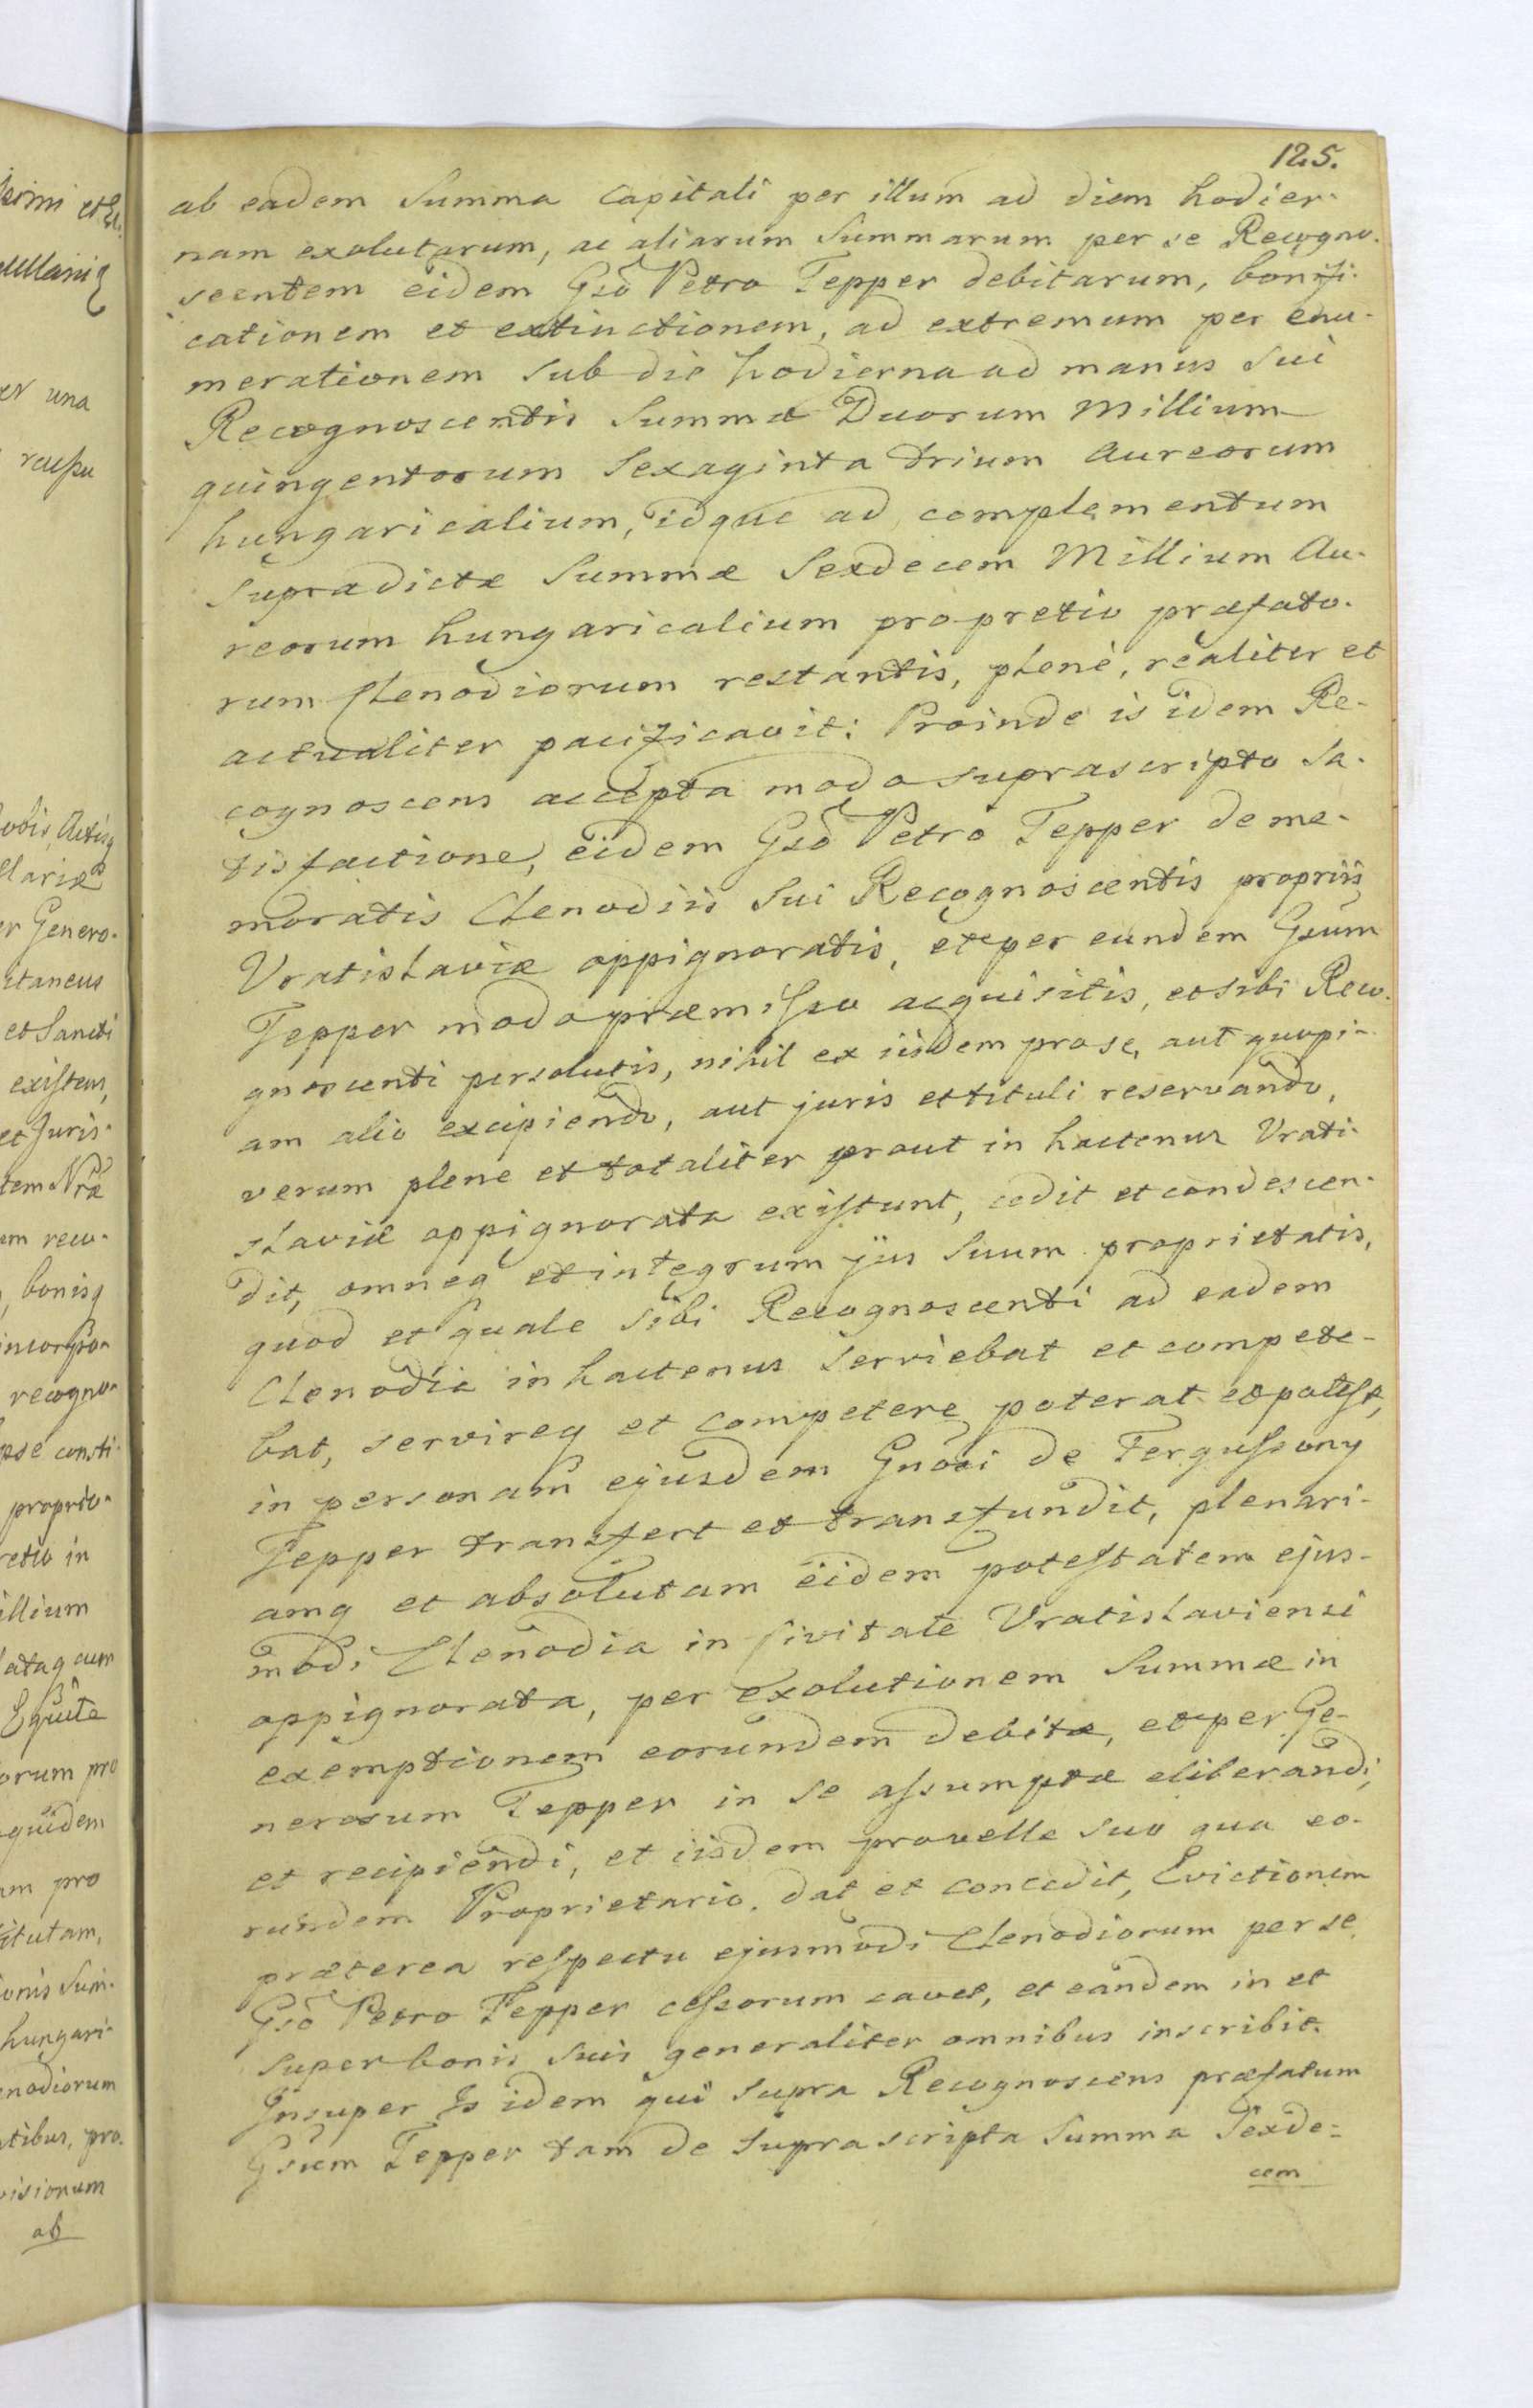 125.
ab eadem Summa Capitali per illum ad diem hodier-
nam exolutarum, ac aliarum Summarum per se Recogno-
scentem eidem Gsõ Petro Tepper debitarum, bonifi-
cationem et extinctionem, ad extremum per enu-
merationem sub die hodierna ad manus sui
Recognoscentis Summæ Duorum Millium
quingentorum Sexaginta trium Aureorum
hungaricalium, idque ad complementum
supradictæ Summæ Sexdecem Millium Au-
reorum hungaricalium pro pretio præfato-
rum Clenodiorum restantis, plenè, realiter et
actualiter pacificavit: Proinde is idem Re-
cognoscens accepta modo suprascripto Sa-
tisfactione, eidem Gsõ Petro Tepper de me-
moratis Clenodiis sui Recognoscentis propriis
Vratislaviæ oppignoratis, et per eundem Gsum
Tepper modo præmisso acquisitis, et sibi Reco-
gnoscenti persolutis, nihil ex iisdem pro se, aut quopi-
am alio excipiendo, aut juris et tituli reservando,
verum plene et totaliter prout in hactenus Vrati-
slaviæ oppignorata existunt, cedit et condescen-
dit, omneq et integrum jus suum proprietatis,
quod et quale sibi Recognoscenti ad eadem
Clenodia in hactenus serviebat et compete-
bat, servireq et competere poterat et potest,
in personam ejusdem Gnõsi de Fergussony
Tepper transfert et transfundit, plenari-
amq et absolutam eidem potestatem ejus-
modi Clenodia in Civitate Vratislaviensi
oppignorata, per exolutionem Summæ in
exemptionem eorundem debitæ, et per Ge-
nerosum Tepper in se assumptæ eliberandi,
et recipiendi, et iisdem pro velle suo qua eo-
rundem Proprietario, dat et concedit, Evictionem
præterea respectu ejusmodi Clenodiorum per se
Gsõ Petro Tepper cessorum cavet, et eandem in et
super bonis suis generaliter omnibus inscribit.
Insuper Is idem qui supra Recognoscens præfatum
Gsum Tepper tam de suprascripta Summa Sexde-
cem